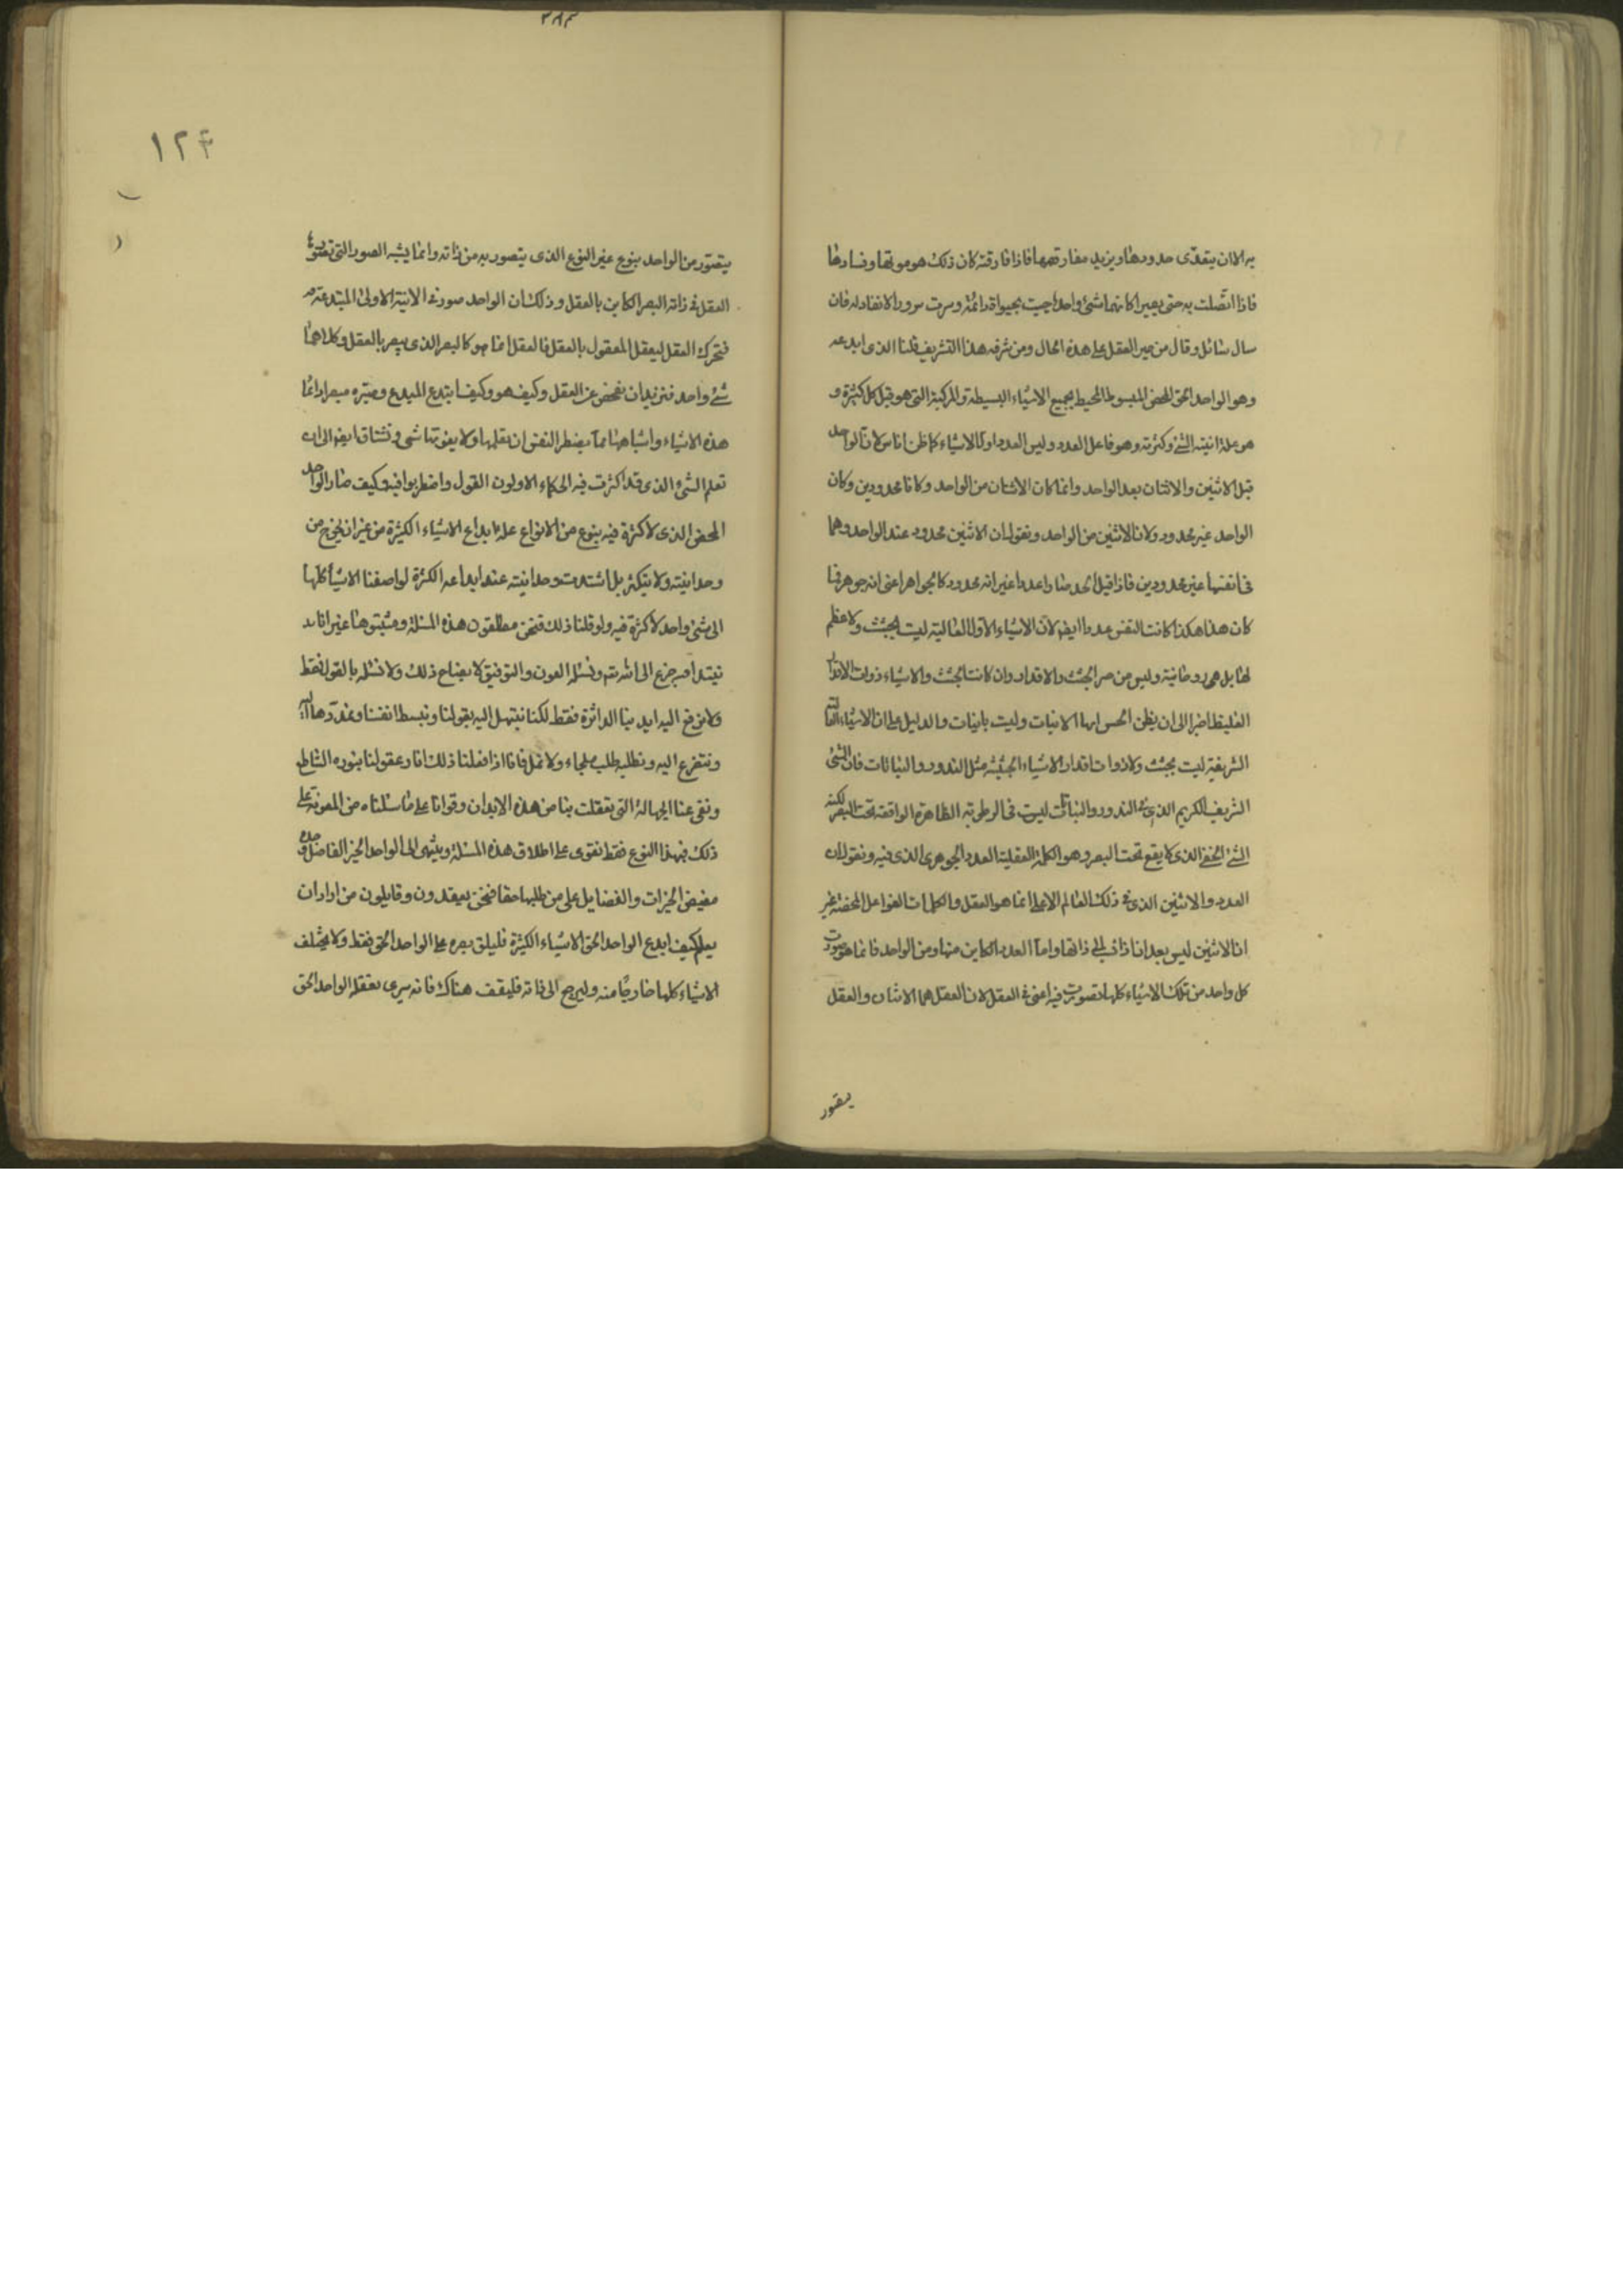 به الا ان يتعدّى حدودها ويريد مفارقتها فاذا فارقته كان ذلك هو موتها وفسادها
فاذا اتّصلت به حتى يصير كانهما شئ واحد حييت بحيواة دائمة وسرت سرورا لا نفاد له فان
سال سائل وقال من صير العقل على هذه الحال ومن شرفه هذا التشريف قلنا الذى ابدعه
وهو الواحد الحق المحض المبسوط المحيط بجميع الاشياء البسيطة والمركبة التى هو قبل كل كثرة و
هو علة انية الشئ وكثرته وهو فاعل العدد وليس العدد اول الاشياء كما ظن اناس لان الواحد
قبل الاثنين والاثنان بعد الواحد وانما كان الاثنان من الواحد وكانا محدودين وكان
الواحد غير محدود ولان الاثنين من الواحد ونقول ان الاثنين محدود عند الواحد وهما
فى انفسها غير محدودين فاذا قيل الحد صار عددا غير انه محدود كالجواهر اعنى انه جوهر فان
كان هذا هكذا كانت النفس عددا ايضا لان الاشياء الاولى العالية ليست بجثث ولا عظم
لها بل هى روحانية وليس من الجثث والاقدار وان كانت الجثث والاشياء ذوات الاقدار
الغليظ اضرا الى ان يظن الحس انها الانيات وليست بانيات والدليل على ان الاشياء العالية
الشريفة ليست بجثث ولا ذوات اقدار الاشياء الجثية مثل البذور والنباتات فان الشئ
الشريف الكريم الذى فى البذور والنباتات ليست فى الرطوبة الظاهرة الواقعة تحت البصر لكنه
الشئ الخفى الذى لا يقع تحت البصر وهو الكلمة العقلية العدد الجوهرى الذى فيه ونقول ان
العدد والاثنين الذى فى ذلك العالم الاعلى انما هو العقل والكلمات الفواعل المحضة غير
ان الاثنين ليس بعد انا ذاتى الى ذاتها واما العدد الكاين منها ومن الواحد فانما هو صورة
كل واحد من تلك الاشياء كلها تصورت فيه اعنى فى العقل لان العقل هما الاثنان والعقل
يتصور
٢٨٣
١٢٤
يتصوّر من الواحد بنوع غير النوع الذى يتصور به من ذاته وانما يشبه الصور التى تصورها
العقل فى ذاته البصر الكاين بالعقل وذلك ان الواحد صور فى الانية الاولى المبتدعة
فتحرك العقل ليعقل المعقول بالعقل فالعقل انما هو كالبصر الذى يبصر بالعقل وكلاهما
شئ واحد فنريد ان نفحص عن العقل وكيف هو وكيف ابتدع المبدع وصيّره مبصرا دائما
هذه الاشياء واشباهها مما يضطر النفس ان تعلمها ولا يفوتنا شى ونشتاق ايضا الى ان
تعلم الشئ الذى قد اكثرت فيه الحكماء الاولون القول واضطربوا فيه وكيف صار الواحد
المحض الذى لا كثرة فيه بنوع من الانواع علة ابداع الاشياء الكثيرة من غير ان يخرج من
وحدانيته ولا يتكثر بل اشتدت وحدانيته عند ابداعه الكثرة لو اضفنا الاشياء كلها
الى شئ واحد لا كثرة فيه ولو قلنا ذلك فنحن مطلقون هذه المسئلة ومثبتوها غير انا
نبتدأ فنتضرع الى الله تعالى ونسئله العون والتوفيق لايضاح ذلك ولا نسئله بالقول فقط
ولا نرفع اليه ايدينا الداثرة فقط لكنا نبتهل اليه بعقولنا ونبسط انفسنا ونمدّدها اليه
ونتضرع اليه ونطلبه طلب ملجاء ولا نمل فانا اذا فعلنا ذلك انار عقولنا بنوره الساطع
ونفى عنا الجهالة التى تعلقت بنا من هذه الابدان وقوانا على ما سئلناه من المعونة على
ذلك فبهذا النوع فقط نقوى على اطلاق هذه المسئلة وينتهى الى الواحد الخير الفاضل وحده
مفيض الخيرات والفضايل على من طلبها حقا فنحن مبتدون وقايلون من اراد ان
يعلم كيف ابدع الواحد الحق الاشياء الكثيرة فليلق بصره على الواحد الحق فقط ولا يخلف
الاشياء كلها خارجًا منه وليرجع الى ذاته فليقف هناك فانه سيرى بعقله الواحد الحق